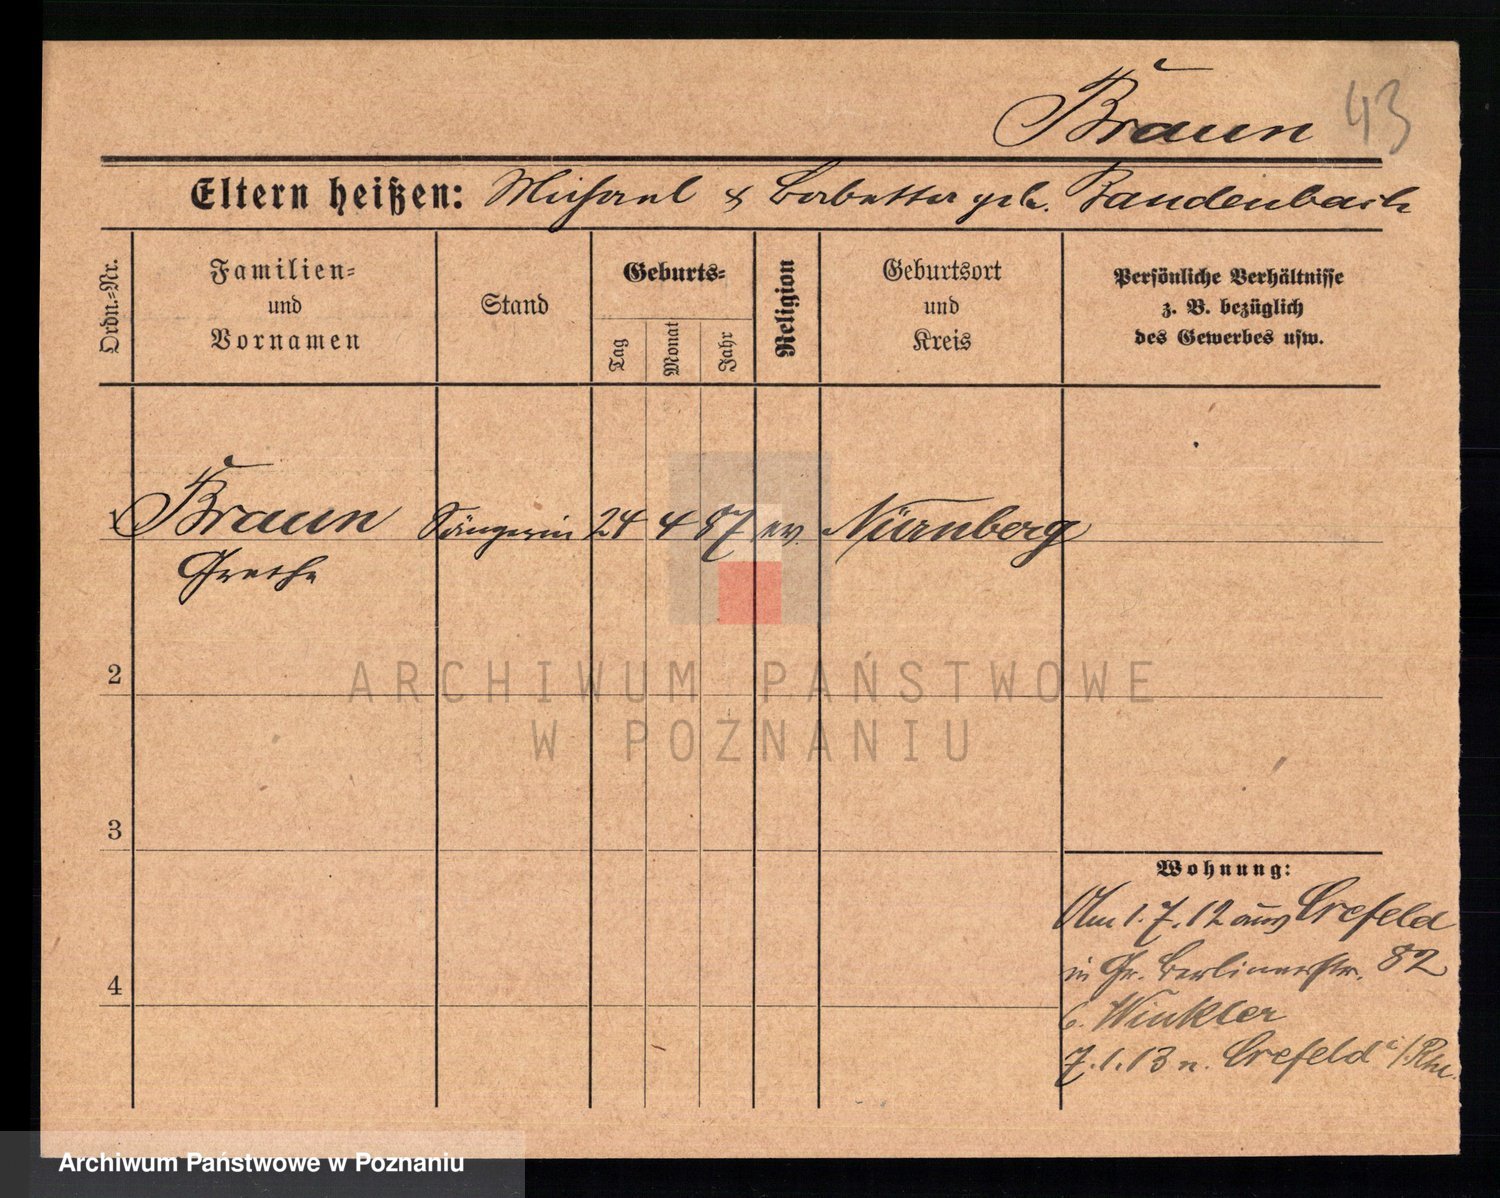 Braun 43
Eltern heißen: Michael & Babetta geb. Bandenbach
Ordn.=Nr.
Familien=
und
Vornamen
Stand
Geburts=
Tag
Monat
Jahr
Religion
Geburtsort
und
Kreis
Persönliche Verhältnisse
z. B. bezüglich
des Gewerbes usw.
1 Braun Sängerin 24 4 87 ev. Nürnberg
Grethe
2
3
4
Wohnung:
Am 1.7.12 aus Crefeld
in Gr. Berlinerstr. 82
b. Winkler
7.1.13 n. Crefeld a/Rhe.
ARCHIWUM PAŃSTWOWE
W POZNANIU
Archiwum Państwowe w Poznaniu